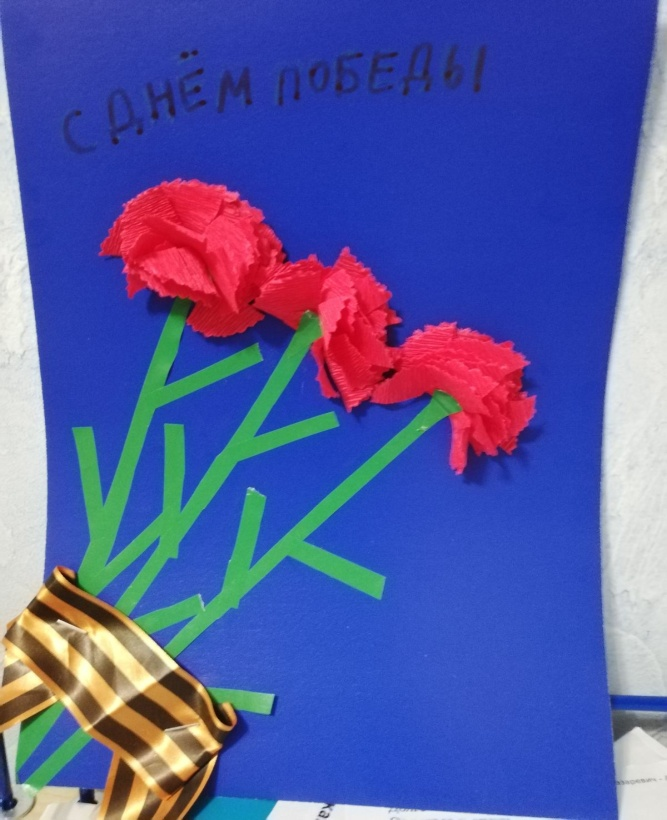 С ДНЁМ ПОБЕДЫ